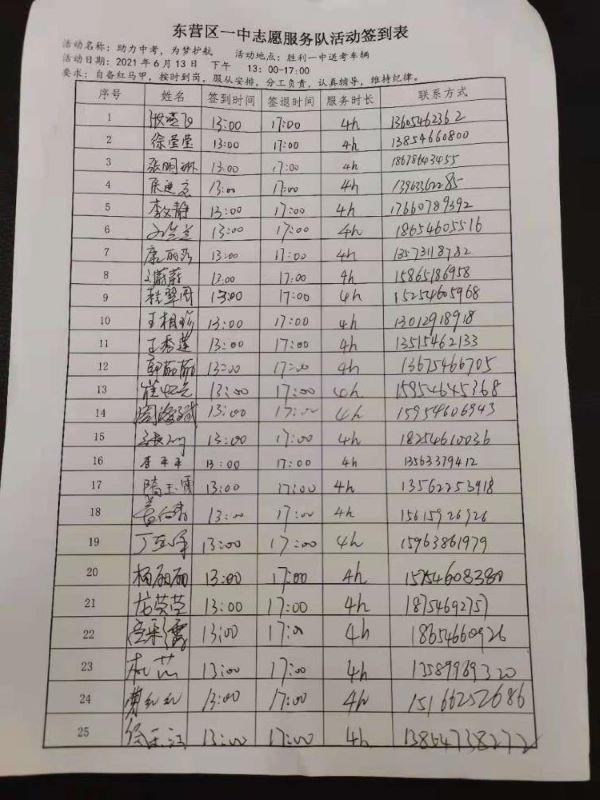 东营区一中志愿服务队活动签到表
活动名称：助力中考，为梦护航 活动地点：胜利一中送考车辆
活动日期：2021年6月13日 下午 13：00-17:00
要求：自备红马甲，按时到岗，服从安排，分工负责，认真辅导，维持纪律。
序号 姓名 签到时间 签退时间 服务时长 联系方式
1 13:00 17:00 4h 13605462362
2 徐莹莹 13:00 17:00 4h 13854660800
3 张明琳 13:00 17:00 4h 18678603455
4 13:00 17:00 4h 13963362285
5 李文静 13:00 17:00 4h 17660789392
6 13:00 17:00 4h 18654605516
7 康丽莎 13:00 17:00 4h 13573118782
8 13:00 17:00 4h 15865186958
9 13:00 17:00 4h 15254605968
10 13:00 17:00 4h 13012918918
11 王秀莲 13:00 17:00 4h 13515462133
12 郭丽丽 13:00 17:00 4h 13675466705
13 13:00 17:00 4h 15954645368
14 13:00 17:00 4h 15954606943
15 13:00 17:00 4h 18254610036
16 李平平 13:00 17:00 4h 13563379412
17 隋玉霞 13:00 17:00 4h 13562253918
18 13:00 17:00 4h 15615926926
19 13:00 17:00 4h 15963861979
20 杨丽丽 13:00 17:00 4h 15754608380
21 13:00 17:00 4h 1875469275?
22 13:00 17:00 4h 18654660926
23 13:00 17:00 4h 13589969320
24 曹红红 13:00 17:00 4h 15166252686
25 13:00 17:00 4h 13854738272